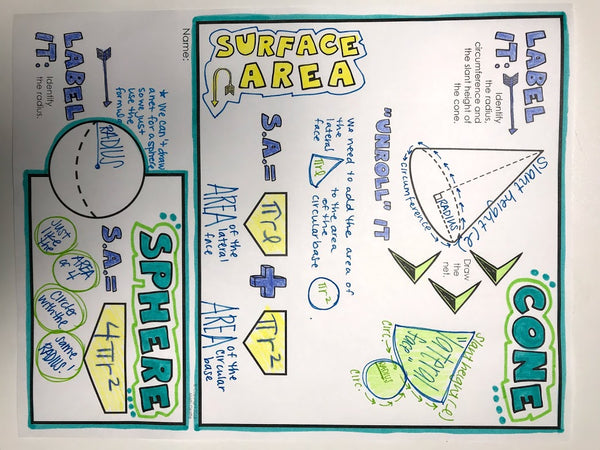 Name:
SURFACE
AREA
CONE
LABEL
IT:
Identify
the radius,
circumference and
the slant height of
the cone.
Slant height (l)
RADIUS
circumference
Draw
the
net.
"UNROLL" IT
Slant height (l)
lateral
face
circ.
RADIUS
circ.
We need to add the area of
the
lateral πrl to the area
face of the
circular base πr² .
S.A. = πrl + πr²
AREA of the
lateral
face
AREA of the
circular
base
SPHERE
LABEL
IT:
Identify
the radius.
* We can't draw
a net for a sphere
so we just
use the
formula
RADIUS
S.A. = 4πr²
Just
like the
AREA
of 4
Circles
with the
same
RADIUS!